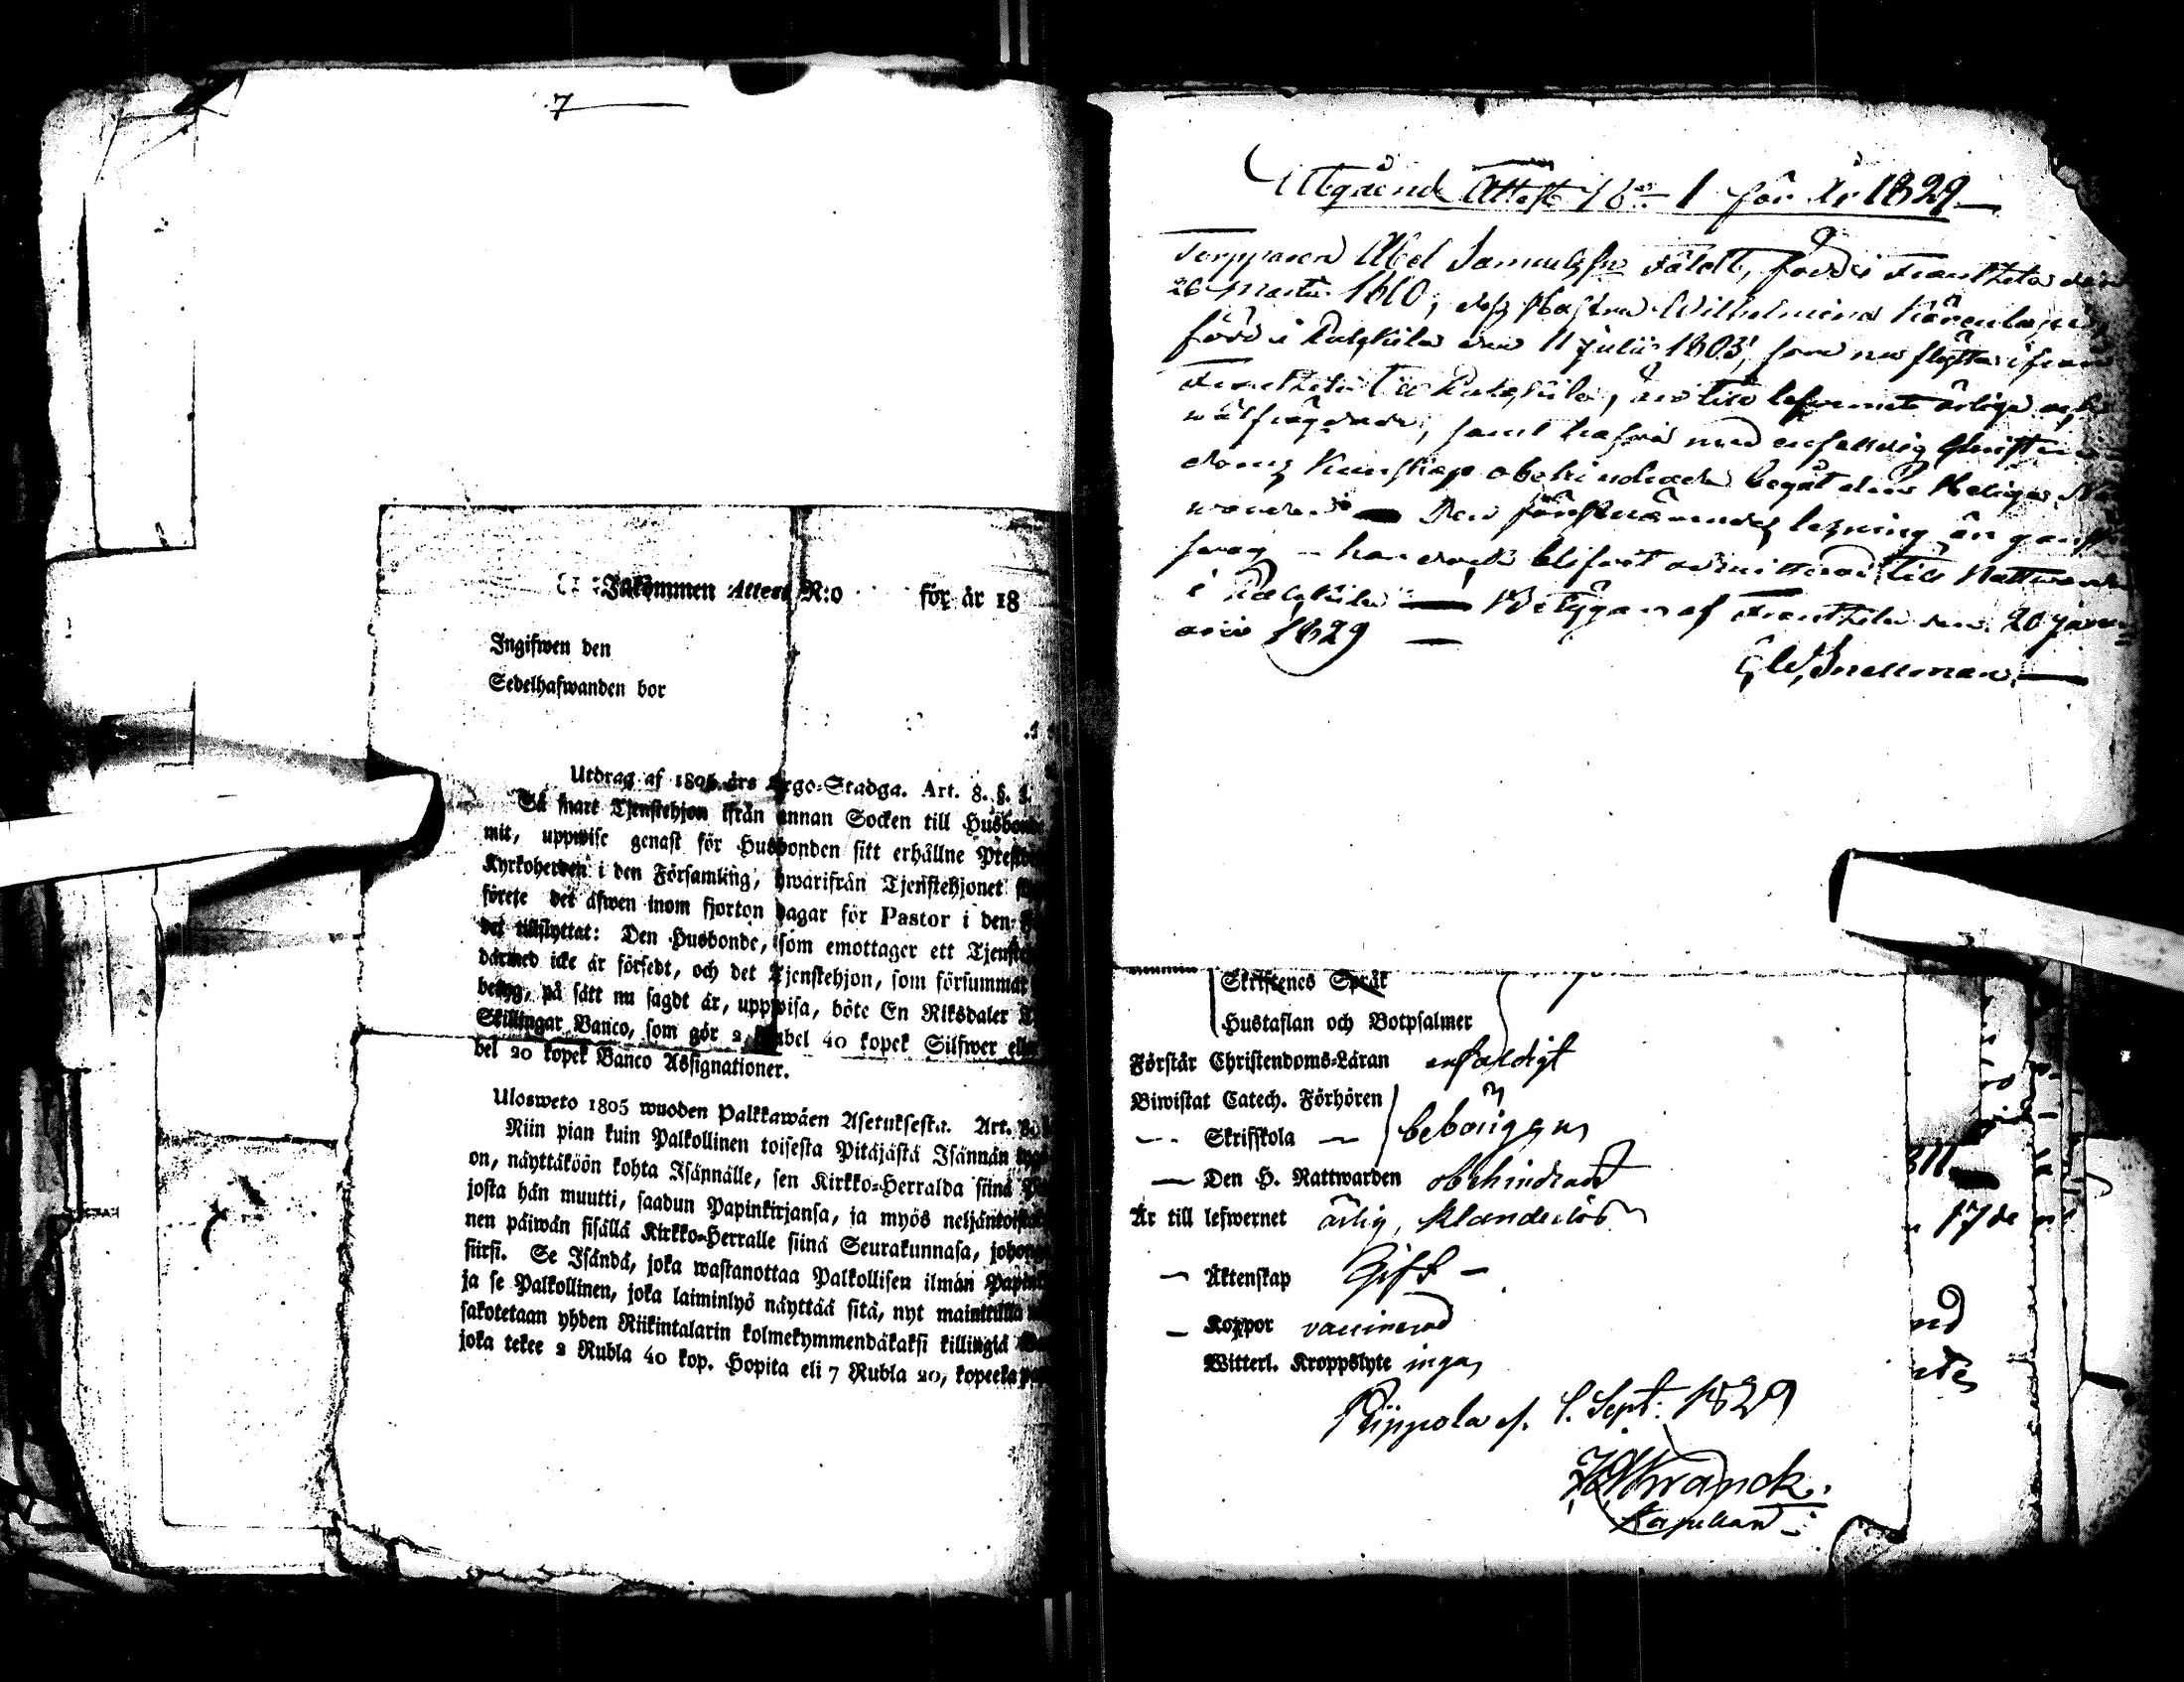 7
Inkommen Attest N:o för år 18
Ingifwen den
Sedelhafwanden bor
Utdrag af 1805 års Lego-Stadga. Art. 8. §.
Så snart Tjenstehjon ifrån annan Socken till Husbon
mit, uppwise genast för Husbonden sitt erhållne Preste
Kyrkoherden i den Församling, hwarifrån Tjenstehjonet
förete det äfwen inom fjorton dagar för Pastor i den
det tillflyttat: Den Husbonde, som emottager ett Tjenste
därmed icke är försedt, och det Tjenstehjon, som försummar
betyg, på sätt nu sagdt är, uppwisa, böte En Riksdaler
Skillingar Banco, som gör 2 Rubel 40 kopek Silfwer eller
bel 20 kopek Banco Assignationer.
Ulosweto 1805 wuoden Palkkawäen Asetuksesta. Art.
Niin pian kuin Palkollinen toisesta Pitäjästä Isännän
on, näyttäköön kohta Isännälle, sen Kirkko-Herralda siinä
josta hän muutti, saadun Papinkirjansa, ja myös neljäntoista
nen päiwän sisällä Kirkko-Herralle siinä Seurakunnasa, johon
siirsi. Se Isändä, joka wastanottaa Palkollisen ilman Papin
ja se Palkollinen, joka laiminlyö näyttää sitä, nyt mainitulla
sakotetaan yhden Riikintalarin kolmekymmendäkaksi killingiä
joka tekee 2 Rubla 40 kop. Hopita eli 7 Rubla 20, kopeeka
Utgående Attest N:o 1 för År 1829
Torpparen Abel Samuelsson Fäldt, född i Frantzila den
26 Martii 1800, dess Hustru Wilhelmina
född i Pulkkila den 11 Julii 1803, som nu flytta ifrån
Frantzila till Pulkkila, äro till lefwernet ärliga och
wälfrägdade, samt hafwa med enfaldig Christen
doms Kunskap obehindrade begått den Heliga Na
warden Den förstnämndes läsning är ganska
swag har dock blifvit admitterad till Nattward
i Pulkkila Betygar af Frantzila den 20 Janu
arii 1829
Snellman
Skriftenes Språk
Hustaflan och Botpsalmer
Förstår Christendoms-Läran enfaldigt
Biwistat Catech. Förhören
Skriffkola
Den H. Nattwarden obehindrad
Är till lefwernet ärlig, klanderlös
Äktenskap Gift
Koppor vaccinerad
Witterl. Kroppslyte inga
Piippola af. 1. Sept: 1829
Wranck.
Kapellan
811
17de